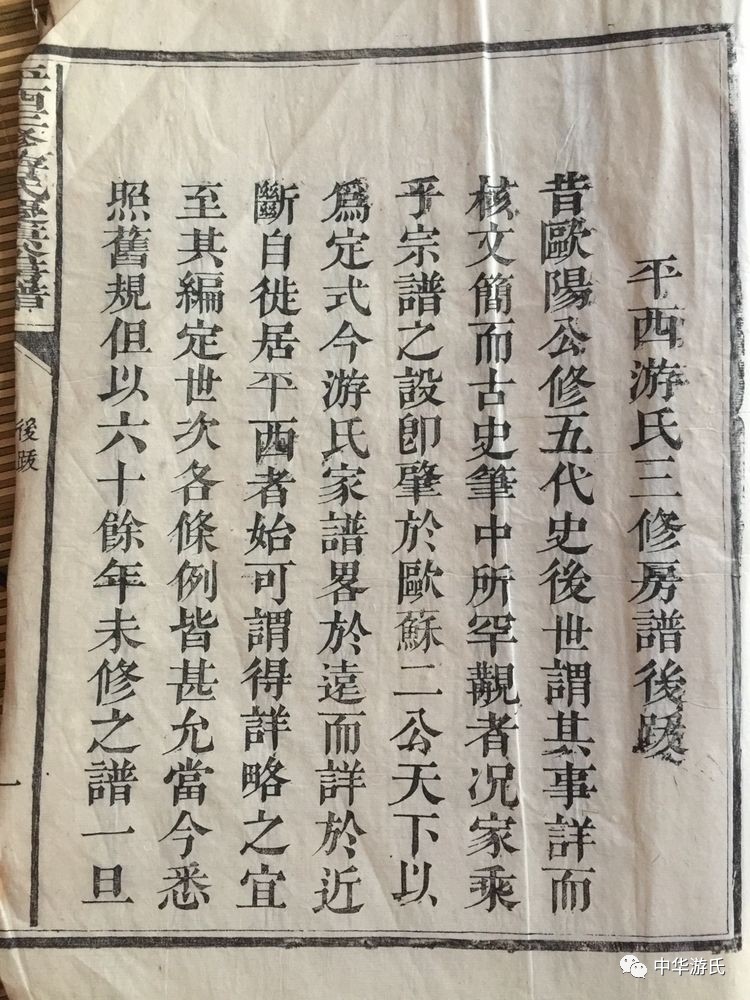 平西游氏三修房譜後跋
昔歐陽公修五代史後世謂其事詳而
核文簡而古史筆中所罕覯者况家乘
乎宗譜之設卽肇於歐蘇二公天下以
爲定式今游氏家譜畧於遠而詳於近
斷自徙居平西者始可謂得詳略之宜
至其編定世次各條例皆甚允當今悉
照舊規但以六十餘年未修之譜一旦
後跋
一
中华游氏